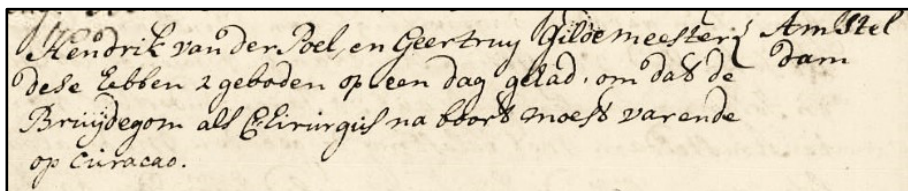 Hendrik van der Poel, en Geertruy Gildemeester{ Amstel
dese hebben 2 geboden op een dag gehad, om dat de dam
Bruijdegom als Chirurgus na boort moest varende
op Curacao.